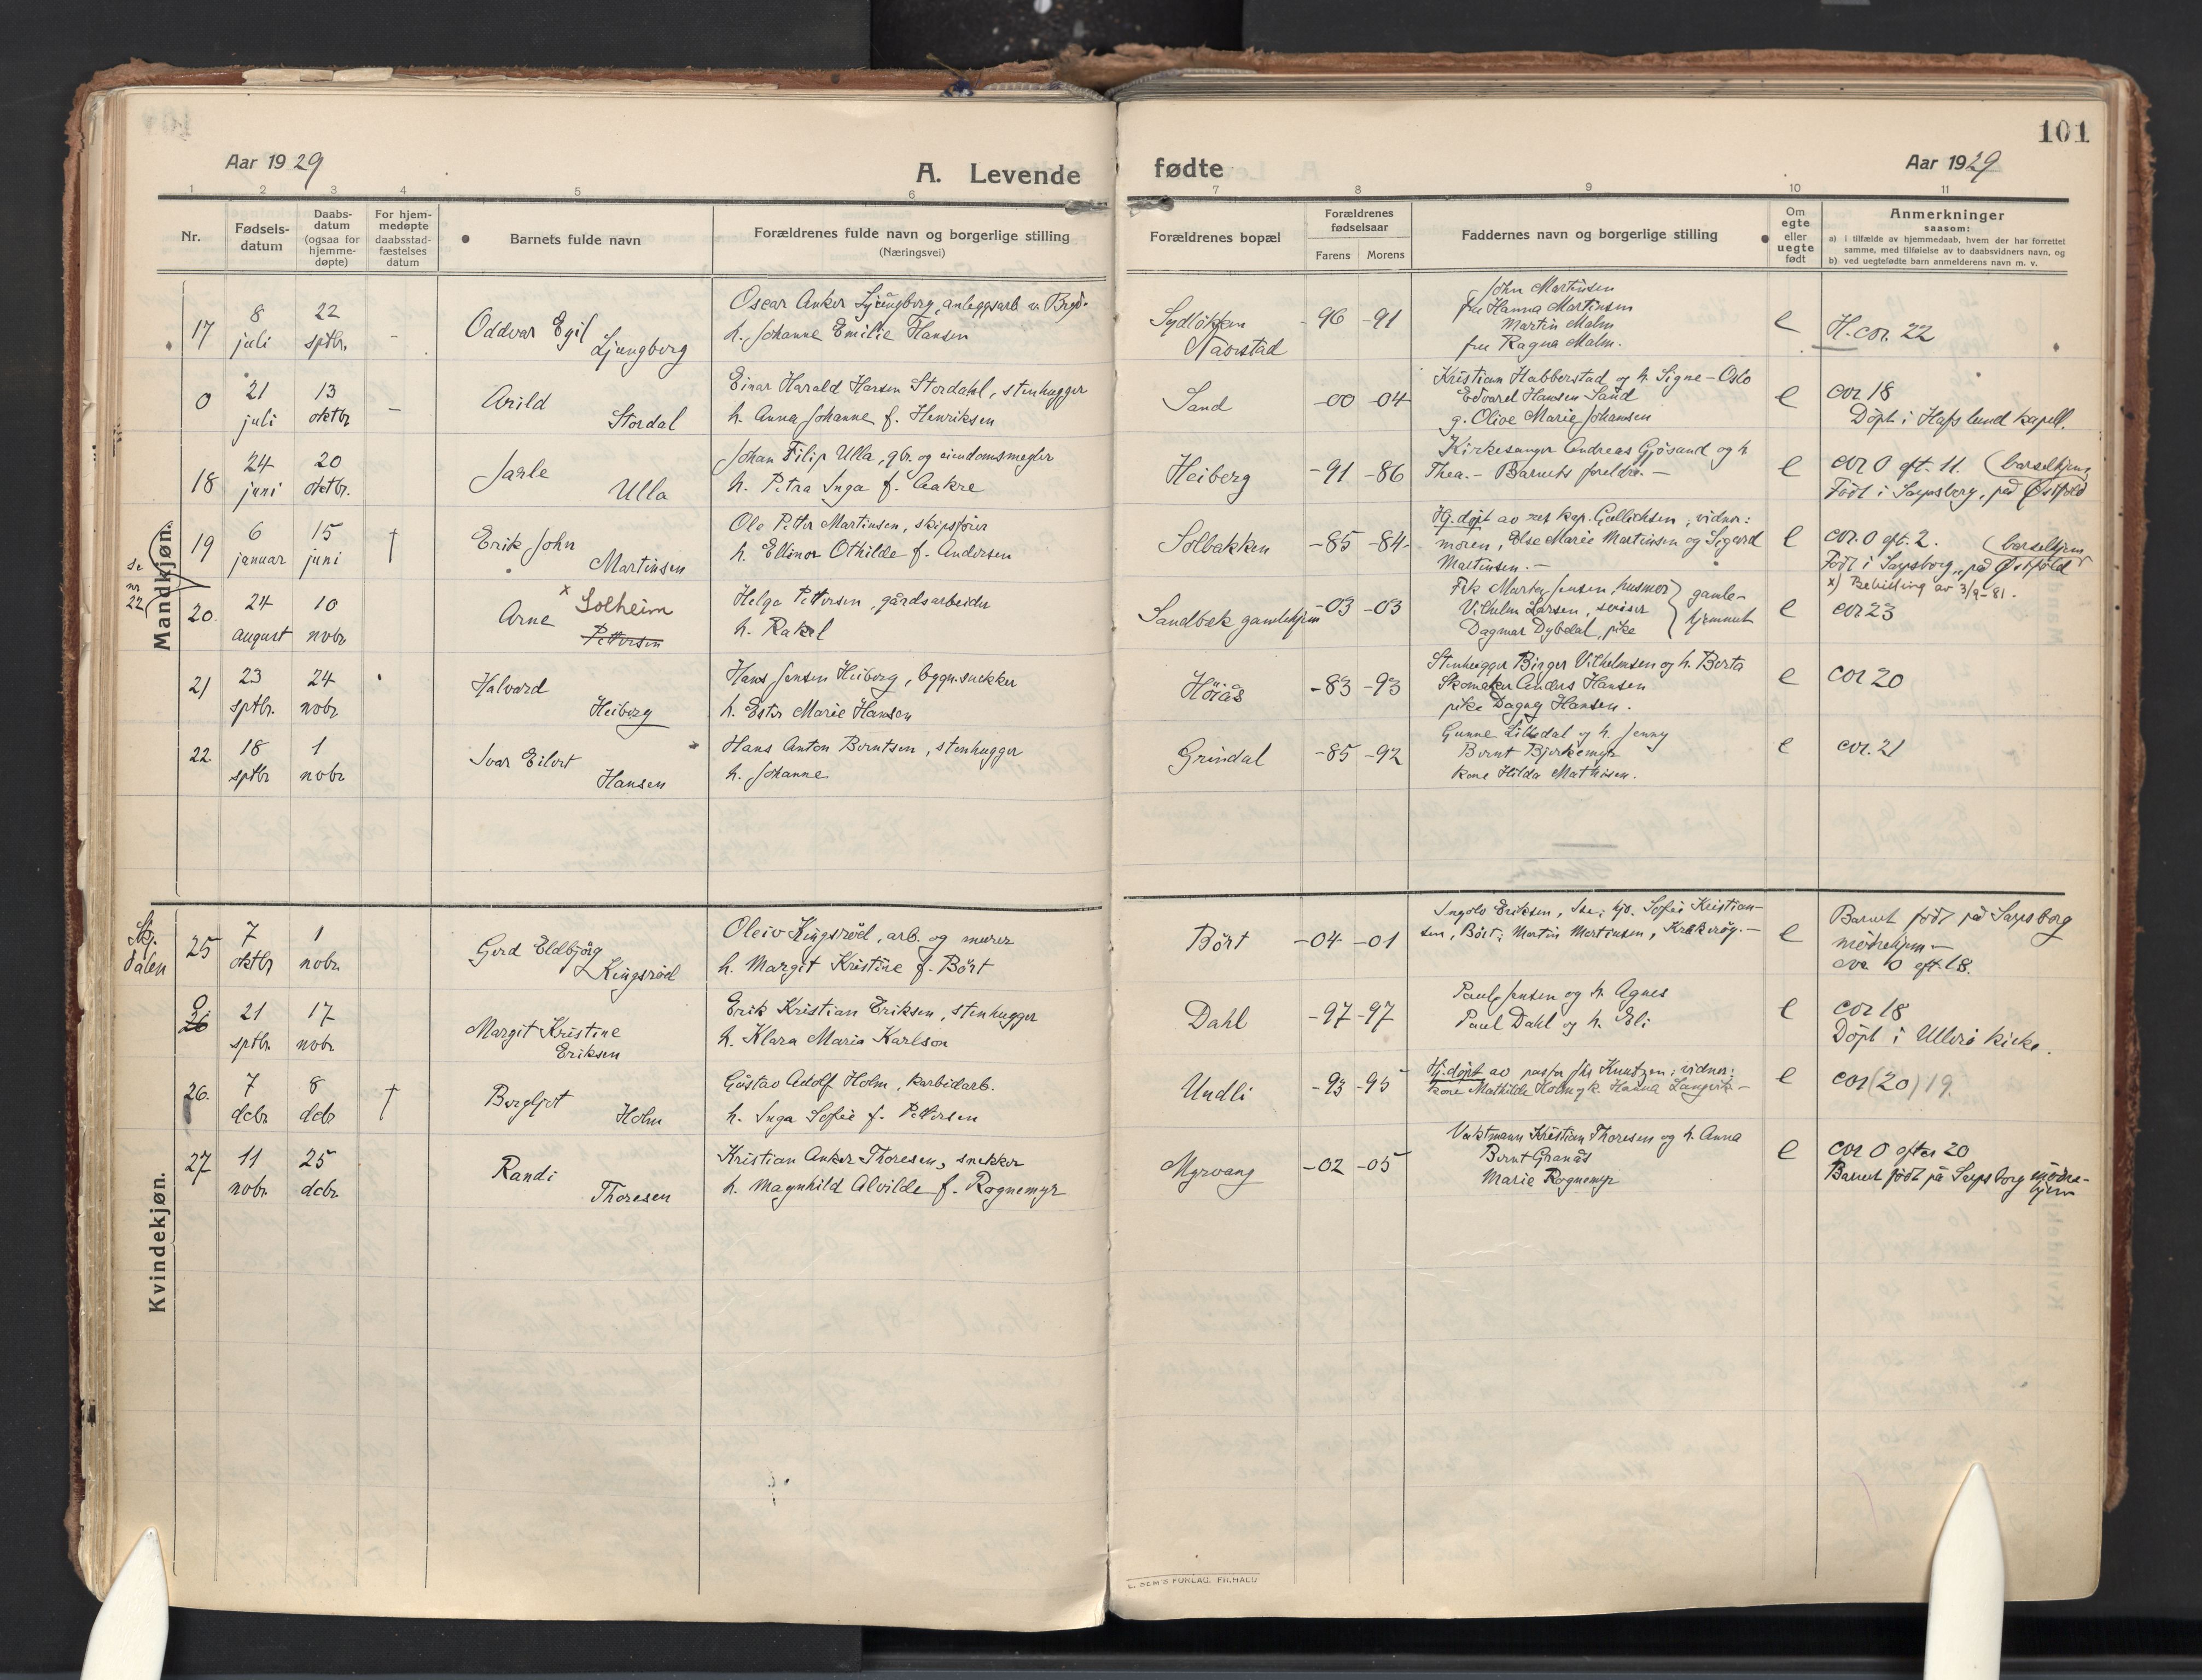 101
Aar 1929
A. Levende
fødte
Aar 1929
1 2 3 4 5 6 7 8 9 10 11
Nr.
Fødsels-
datum
Daabs-
datum
(ogsaa for
hjemme-
døpte)
For hjem-
medøpte
daabsstad-
fæstelses
datum
Barnets fulde navn
Forældrenes fulde navn og borgerlige stilling
(Næringsvei)
Forældrenes bopæl
Forældrenes
fødselsaar
Farens Morens
Faddernes navn og borgerlige stilling
Om
egte
eller
uegte
født
Anmerkninger
saasom:
a) i tilfælde av hjemmedaab, hvem der har forrettet
samme, med tilføielse av to daabsvidners navn, og
b) ved uegtefødte barn anmelderens navn m. v.
Mandkjøn.
17
8
juli
22
sptbr.
-
Oddvar Egil
Ljungberg
Oscar Anker Ljungberg, anleggsarb
h. Johanne Emilie Hansen
Sydløkken
Navestad
-96 -91
John Martinsen
fru Hanna Martinsen
Martin Malm
fru Ragna Malm.
e
H. cor. 22
0
21
juli
13
oktbr
-
Arild
Stordal
Einar Harald Hansen Stordahl, stenhugger
h. Anna Johanne f. Henriksen
Sand
-00 -04
Kristian Habberstad og h. Signe - Oslo
Edvard Hansen Sand
g. Olive Marie Johansen
e
cor 18
Döpt i Hafslund kapell.
18
24
juni
20
oktbr.
Jarle
Ulla
Johan Filip Ulla, gbr. og eiendomsmegler
h. Petra Inga f. Aakre
Heiberg
-91 -86
Kirkesanger Andreas Gjösund og h
Thea. - Barnets foreldre. -
e
cor 0 eft. 11. (barselhjem,
Född i Sarpsborg, på Østfold
19
6
januar
15
juni
†
Erik John
Martinsen
Ole Petter Martinsen, skipsfører
h. Ellinor Othilde f. Andersen
Solbakken
-85 -84
Hj.døpt av res kap. Gullichsen, vidner:
moren, Else Marie Martinsen og Sigurd
Martinsen. -
e
cor. 0 eft. 2. (barselhjem
Född i Sarpsborg, på Østfold
se
nr
22
20.
24
august
10
nobr
Arne x Solheim
Pettersen
Helge Pettersen, gårdsarbeider
h. Rakel
Sandbæk gamlehjem
-03 -03
Frk Marta Jensen, husmor
Vilhelm Larsen, sviser
Dagmar Dybedal, pike
gamle-
hjemmet
e
x) Bevilling av 3/9-81.
cor 23
21
23
sptbr.
24
nobr.
Halvard
Heiberg
Hans Jensen Heiberg, byggn.snekker
h. Ester Marie Hansen
Höiås
-83 -93
Stenhugger Birger Vilhelmsen og h. Berta
Skomaker Anders Hansen
pike Dagny Hansen.
e
cor 20
22.
18
sptbr
1
nobr
Ivar Eilert
Hansen
Hans Anton Berntsen, stenhugger
h. Johanne
Grindal
-85 -92
Gunne Lilledal og h. Jenny
Bernt Bjerkemyr
kone Hilda Mathisen.
e
cor. 21
Kvindekjøn.
Skj.
dalen
25
7
oktbr
1
nobr.
Gerd Eldbjörg
Kingsröd
Oleiv Kingsröd, arb. og murer
h. Margit Kristine f. Børt
Børt
-04 -01
Ingolv Eriksen, Ise; hjv. Sofie Kristian-
sen, Børt; Martin Martinsen, Kråkeröy. -
e
Barnet född på Sarpsborg
mödrehjem -
cor. 0 eft 18.
0
26
21
sptbr.
17
nobr
Margit Kristine
Eriksen
Erik Kristian Eriksen, stenhugger
h. Klara Maria Karlson
Dahl
-97 -97
Paul Jensen og h. Agnes
Paul Dahl og h. Eli
e
cor 18
Döpt i Ullerö kirke.
26.
7
dcbr
8
dcbr
†
Bergljot
Holm
Gustav Adolf Holm, karbidarb.
h. Inga Sofie f. Pettersen
Undli
-93 -95
Hj.døpt av pastor Knutzen; vidner:
kone Mathilde Holmyk Hanna Langvik -
e
cor (20) 19.
27
11
nobr.
25
dcbr.
Randi
Thoresen
Kristian Anker Thoresen, snekker
h. Magnhild Alvilde f. Rognemyr
Myrvang
-02 -05
Vaktmann Kristian Thoresen og h. Anna
Bernt Granås
Marie Rognemyr
e
cor 0 efter 20
Barnet född på Sarpsborg mödre-
hjem